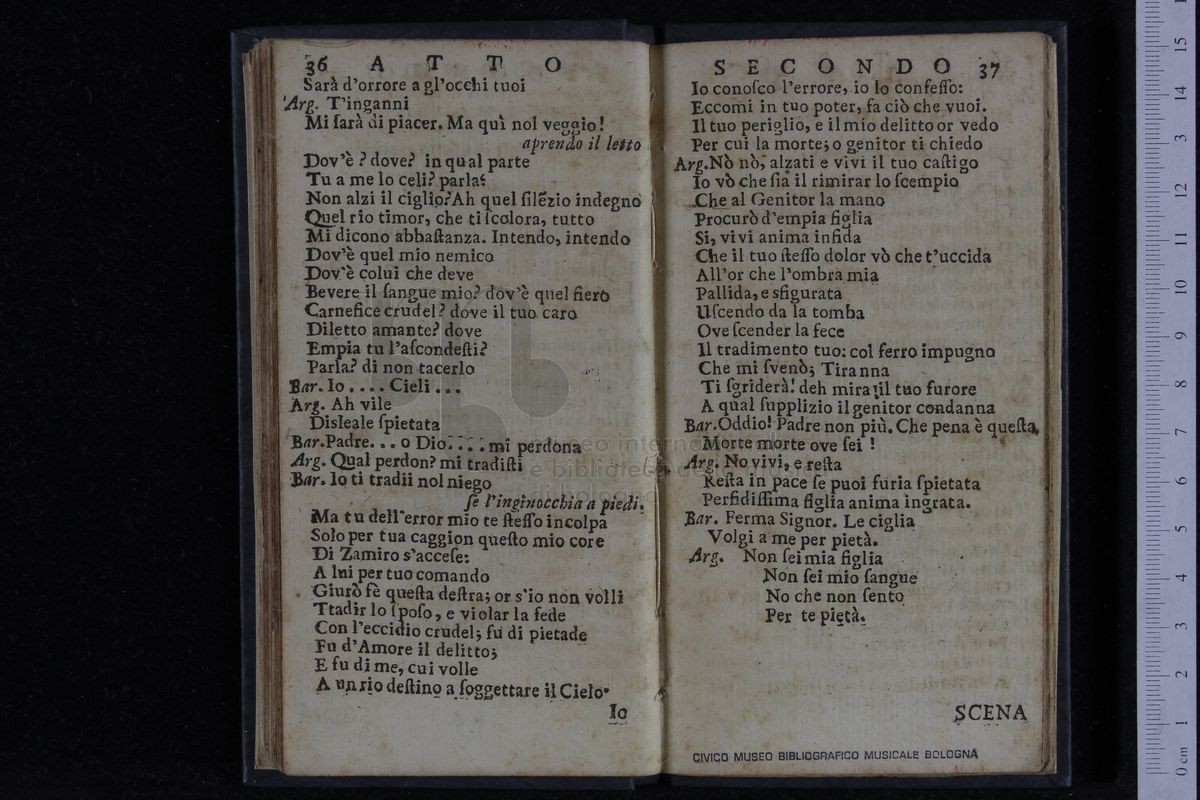 36 A T T O
Sarà d'orrore a gl'occhi tuoi
Arg. T'inganni
Mi ſarà di piacer. Ma quì nol veggio!
aprendo il letto
Dov'è ? dove? in qual parte
Tu a me lo celi? parla?
Non alzi il ciglio? Ah quel ſilẽzio indegno
Quel rio timor, che ti ſcolora, tutto
Mi dicono abbaſtanza. Intendo, intendo
Dov'è quel mio nemico
Dov'è colui che deve
Bevere il ſangue mio? dov'è quel fiero
Carnefice crudel? dove il tuo caro
Diletto amante? dove
Empia tu l'aſcondeſti?
Parla? di non tacerlo
Bar. Io .... Cieli ...
Arg. Ah vile
Disleale ſpietata
Bar. Padre... o Dio.... mi perdona
Arg. Qual perdon? mi tradiſti
Bar. Io ti tradii nol niego
ſe l'inginocchia a piedi.
Ma tu dell'error mio te ſteſſo incolpa
Solo per tua caggion queſto mio core
Di Zamiro s'acceſe:
A lui per tuo comando
Giurò fè queſta deſtra; or s'io non volli
Ttadir lo ſpoſo, e violar la fede
Con l'eccidio crudel; fù di pietade
Fu d'Amore il delitto;
E fu di me, cui volle
A un rio deſtino a ſoggettare il Cielo.
Io
S E C O N D O 37
Io conoſco l'errore, io lo confeſſo:
Eccomi in tuo poter, fa ciò che vuoi.
Il tuo periglio, e il mio delitto or vedo
Per cui la morte; o genitor ti chiedo
Arg. Nò nò, alzati e vivi il tuo caſtigo
Io vò che ſia il rimirar lo ſcempio
Che al Genitor la mano
Procurò d'empia figlia
Si, vivi anima infida
Che il tuo ſteſſo dolor vò che t'uccida
All'or che l'ombra mia
Pallida, e sfigurata
Uſcendo da la tomba
Ove ſcender la fece
Il tradimento tuo: col ferro impugno
Che mi ſvenò; Tiranna
Ti ſgriderà! deh mira il tuo furore
A qual ſupplizio il genitor condanna
Bar. Oddio! Padre non più. Che pena è queſta,
Morte morte ove ſei !
Arg. No vivi, e reſta
Reſta in pace ſe puoi furia ſpietata
Perfidiſſima figlia anima ingrata.
Bar. Ferma Signor. Le ciglia
Volgi a me per pietà.
Arg. Non ſei mia figlia
Non ſei mio ſangue
No che non ſento
Per te pietà.
SCENA
CIVICO MUSEO BIBLIOGRAFICO MUSICALE BOLOGNA